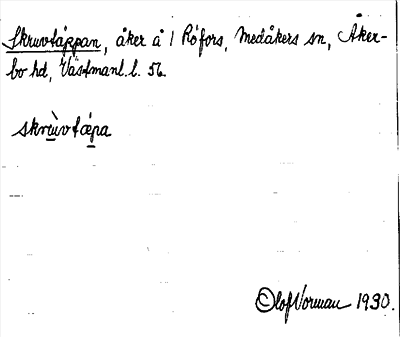 Skruvtäppan, åker å 1 Röfors, Medåkers sn, Åker-
bo hd, Västmanl. l. 56.
skrùvtæ̀pa
Olof Vorman 1930.